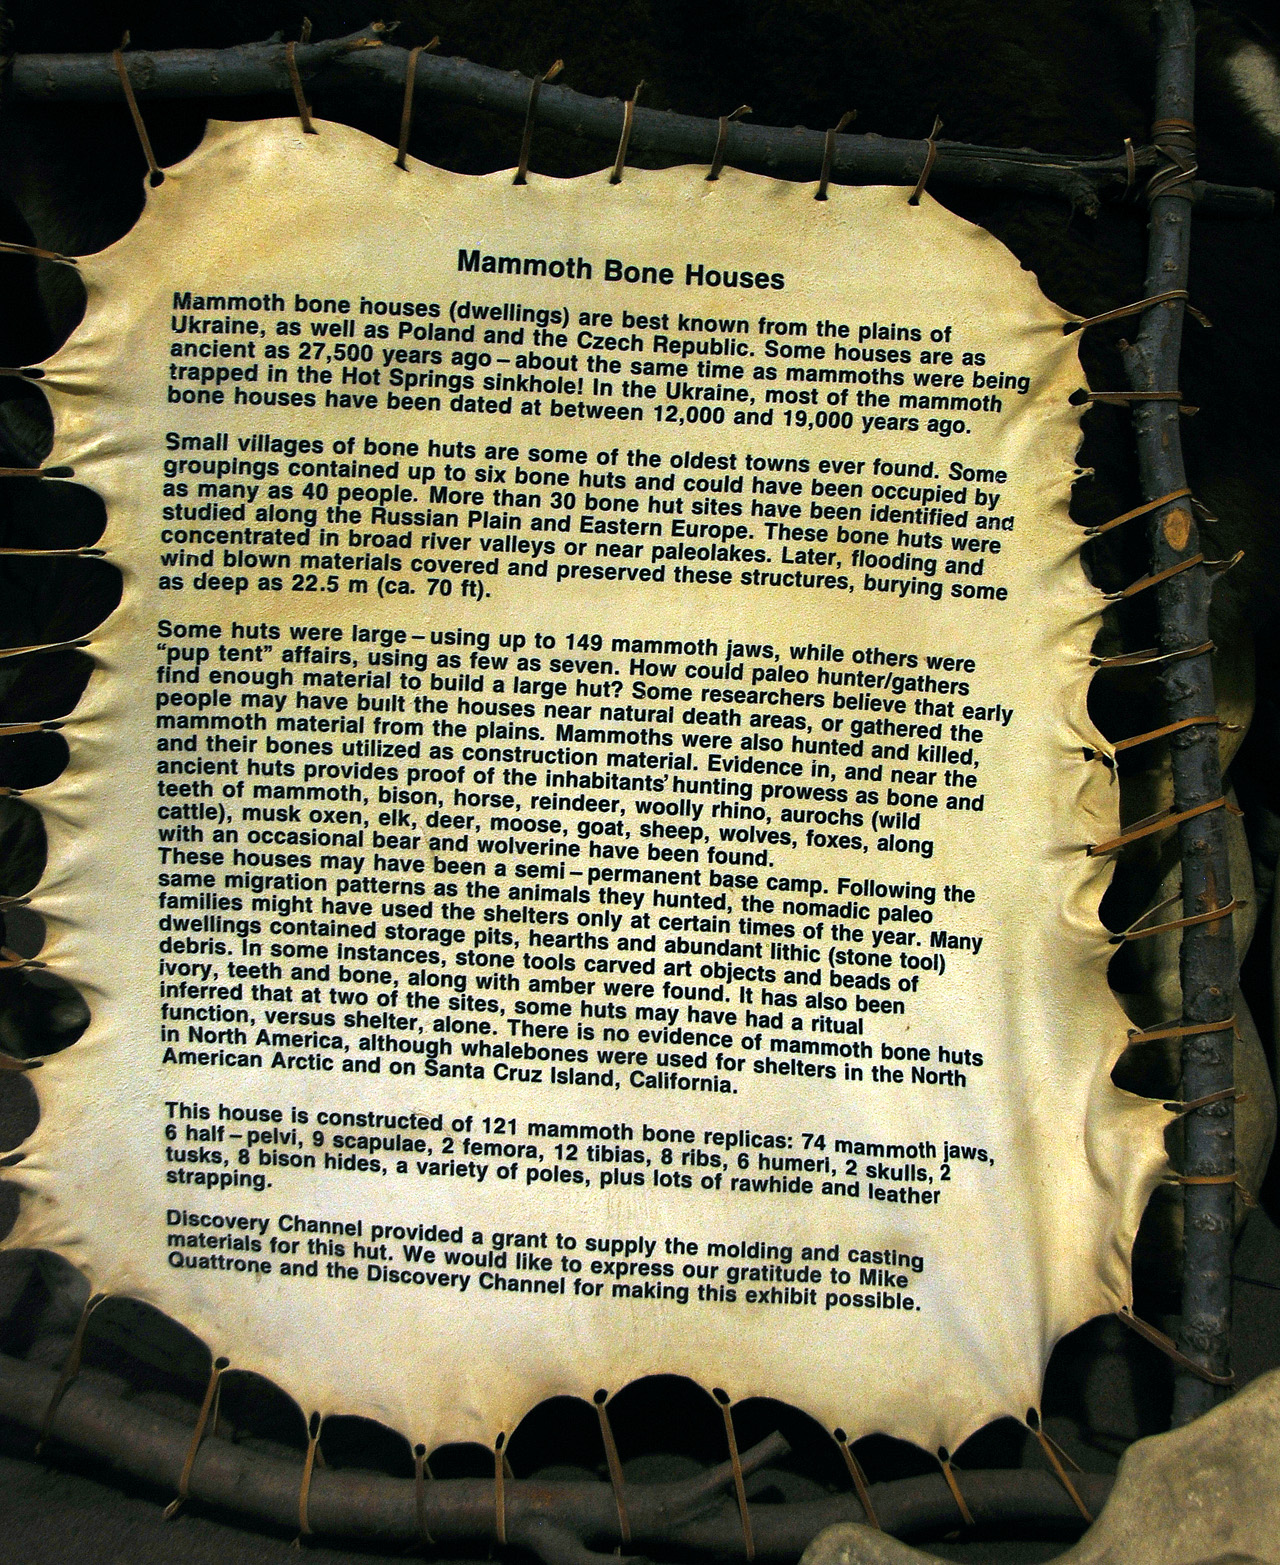 Mammoth Bone Houses
Mammoth bone houses (dwellings) are best known from the plains of
Ukraine, as well as Poland and the Czech Republic. Some houses are as
ancient as 27,500 years ago – about the same time as mammoths were being
trapped in the Hot Springs sinkhole! In the Ukraine, most of the mammoth
bone houses have been dated at between 12,000 and 19,000 years ago.
Small villages of bone huts are some of the oldest towns ever found. Some
groupings contained up to six bone huts and could have been occupied by
as many as 40 people. More than 30 bone hut sites have been identified and
studied along the Russian Plain and Eastern Europe. These bone huts were
concentrated in broad river valleys or near paleolakes. Later, flooding and
wind blown materials covered and preserved these structures, burying some
as deep as 22.5 m (ca. 70 ft).
Some huts were large – using up to 149 mammoth jaws, while others were
“pup tent” affairs, using as few as seven. How could paleo hunter/gathers
find enough material to build a large hut? Some researchers believe that early
people may have built the houses near natural death areas, or gathered the
mammoth material from the plains. Mammoths were also hunted and killed,
and their bones utilized as construction material. Evidence in, and near the
ancient huts provides proof of the inhabitants’ hunting prowess as bone and
teeth of mammoth, bison, horse, reindeer, woolly rhino, aurochs (wild
cattle), musk oxen, elk, deer, moose, goat, sheep, wolves, foxes, along
with an occasional bear and wolverine have been found.
These houses may have been a semi – permanent base camp. Following the
same migration patterns as the animals they hunted, the nomadic paleo
families might have used the shelters only at certain times of the year. Many
dwellings contained storage pits, hearths and abundant lithic (stone tool)
debris. In some instances, stone tools carved art objects and beads of
ivory, teeth and bone, along with amber were found. It has also been
inferred that at two of the sites, some huts may have had a ritual
function, versus shelter, alone. There is no evidence of mammoth bone huts
in North America, although whalebones were used for shelters in the North
American Arctic and on Santa Cruz Island, California.
This house is constructed of 121 mammoth bone replicas: 74 mammoth jaws,
6 half – pelvi, 9 scapulae, 2 femora, 12 tibias, 8 ribs, 6 humeri, 2 skulls, 2
tusks, 8 bison hides, a variety of poles, plus lots of rawhide and leather
strapping.
Discovery Channel provided a grant to supply the molding and casting
materials for this hut. We would like to express our gratitude to Mike
Quattrone and the Discovery Channel for making this exhibit possible.